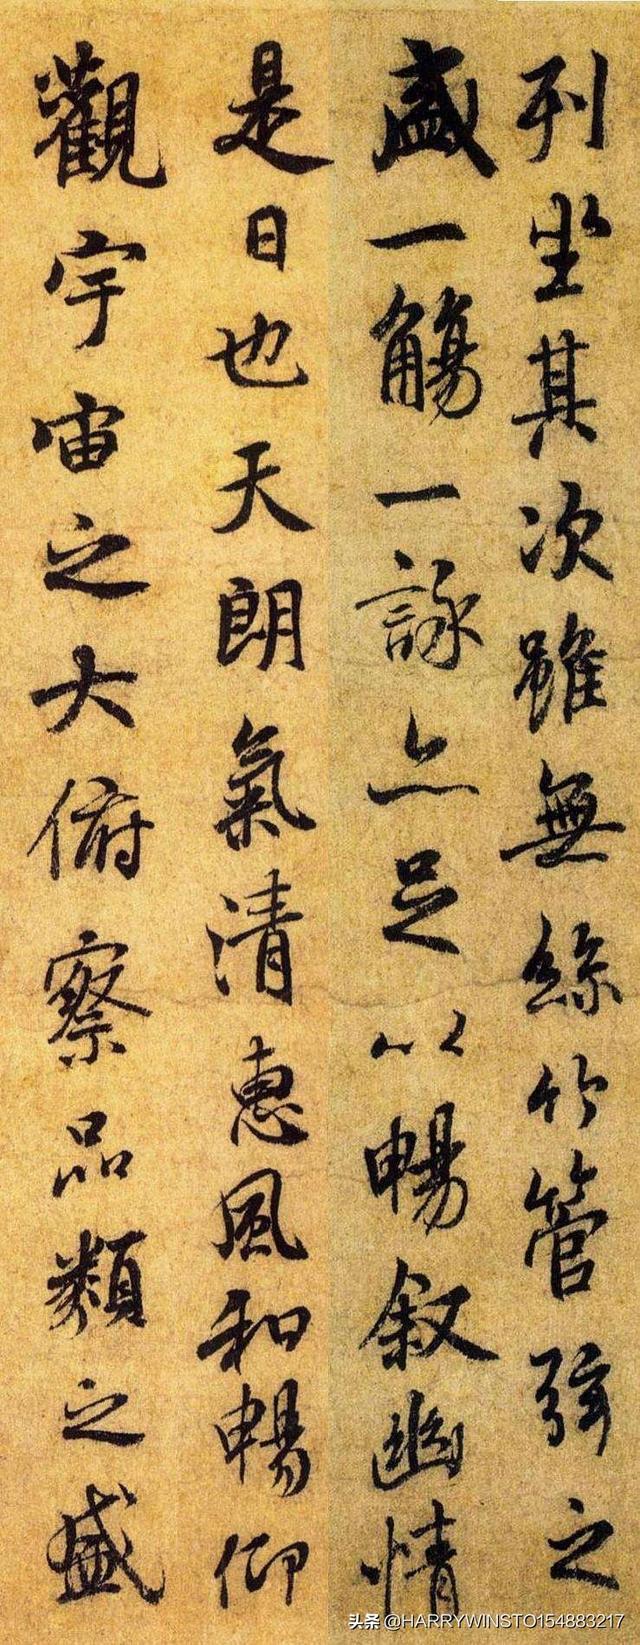 列坐其次雖無絲竹管弦之
盛一觴一詠亦足以暢叙幽情
是日也天朗氣清惠風和暢仰
觀宇宙之大俯察品類之盛
头条 @HARRYWINSTO154883217